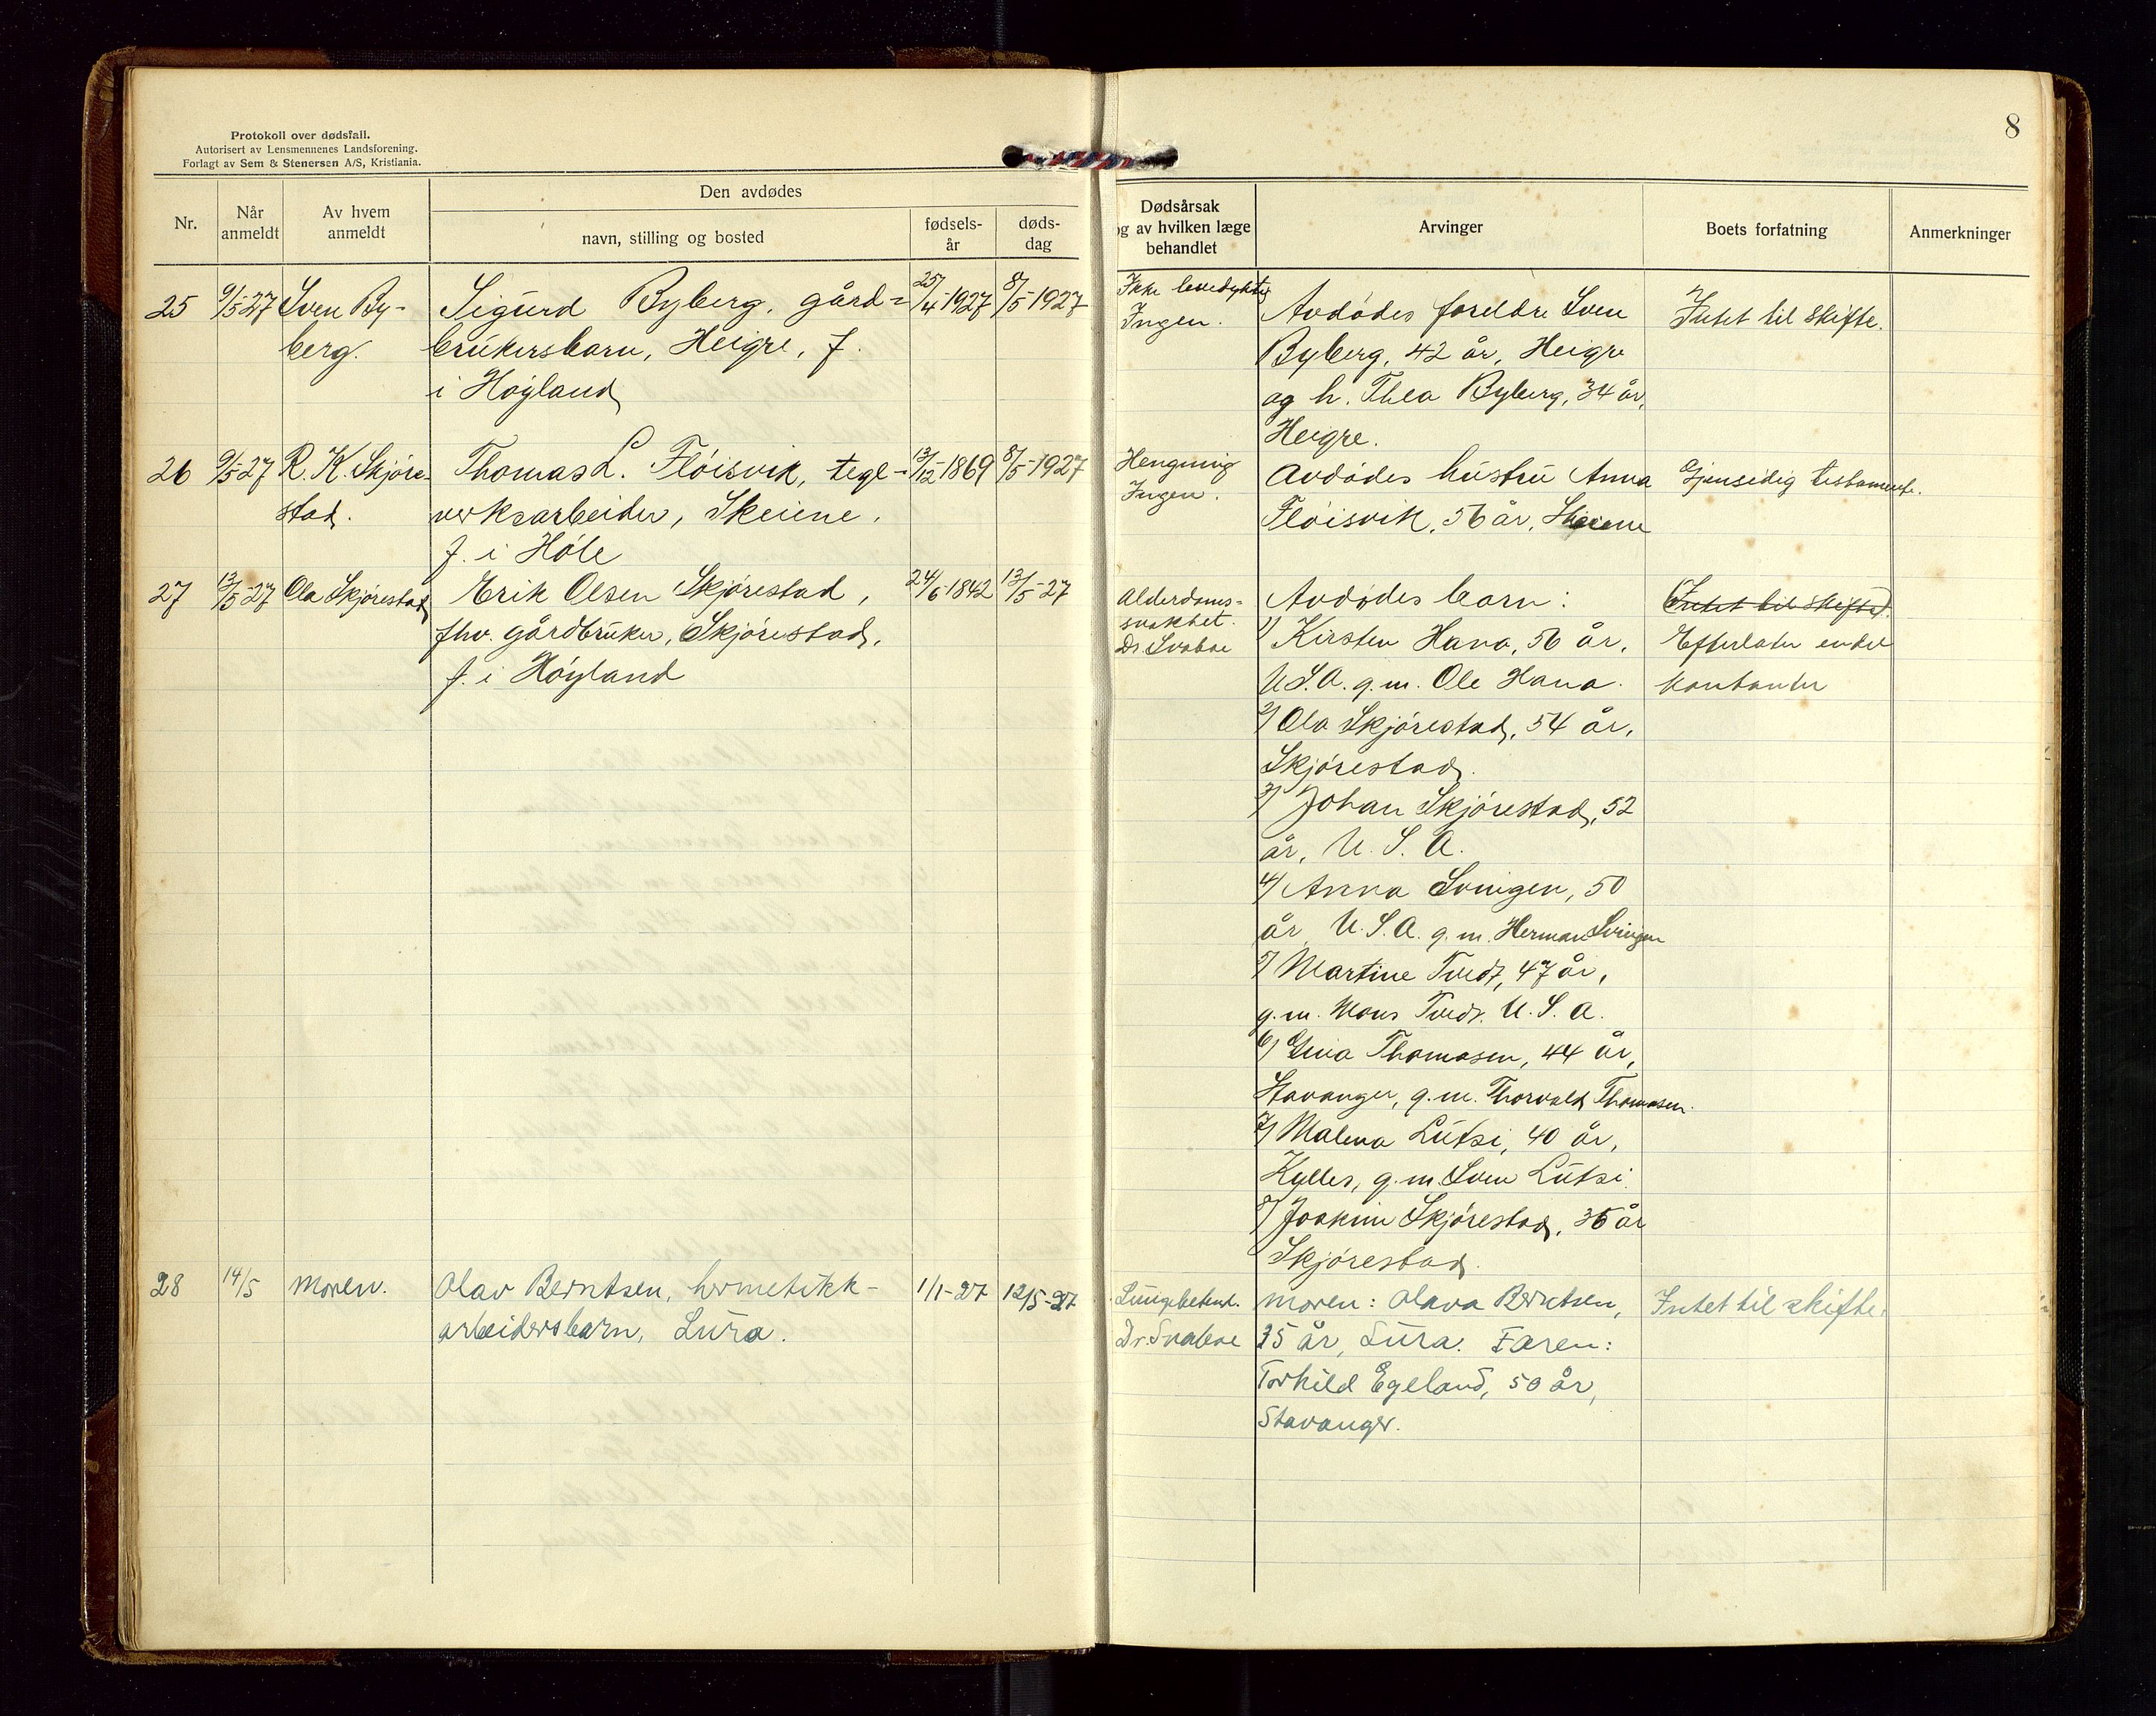 Protokoll over dødsfall.
Autorisert av Lensmennenes Landsforening.
Forlagt av Sem & Stenersen A/S, Kristiania.
8
Nr.
Når anmeldt
Av hvem anmeldt
Den avdødes
navn, stilling og bosted
fødsels-år
døds-dag
Dødsårsak
og av hvilken læge
behandlet
Arvinger
Boets forfatning
Anmerkninger
25 9/5-27 Sven By- Sigurd Byberg, gård= 25/4-1927 8/5-1927
berg. brukersbarn, Heigre, f.
i Høyland
Ikke levedyktig
Ingen.
Avdødes foreldre Sven
Byberg, 42 år, Heigre
og h. Thea Byberg, 34 år,
Heigre.
Intet til skifte.
26 9/5-27 R. K. Skjøre- Thomas L. Fløisvik, tegl- 13/12 1869 8/5-1927
stad. verksarbeider, Skeiene,
f. i Høle
Hengning
Ingen.
Avdødes hustru Anna
Fløisvik, 56 år, Skeiene
Gjensidig testamente.
27 13/5-27 Ola Skjørestad Erik Olsen Skjørestad, 24/6-1842 13/5-27
fhv. gårdbruker, Skjørestad,
f. i Høyland
Alderdoms=
svakhet.
Dr Svaboe
Avdødes barn:
1/ Kirsten Hana, 56 år,
U.S.A. g.m. Ole Hana.
2/ Ola Skjørestad, 54 år,
Skjørestad.
3/ Johan Skjørestad, 52
år, U. S. A.
4/ Anna Svingen, 50
år U.S.A. g.m. Herman Svingen
5/ Martine Tvedt, 47 år,
g.m. Mons Tvedt. U. S. A.
6/ Gina Thomasen, 44 år,
Stavanger, g.m. Thorvald Thomasen.
7/ Malena Lutsi, 40 år,
Kylles, g.m. Sven Lutsi.
8/ Joakim Skjørestad, 36 år
Skjørestad.
(Intet til skifte).
Efterlater endel
kontanter
28 14/5 Moren. Olav Berntsen, hermetikk- 1/1-27 12/5-27
arbeidersbarn, Lura.
Lungebetend.
Dr. Svaboe
Moren: Olava Berntsen,
35 år, Lura. Faren:
Torkild Egeland, 50 år,
Stavanger.
Intet til skifte.